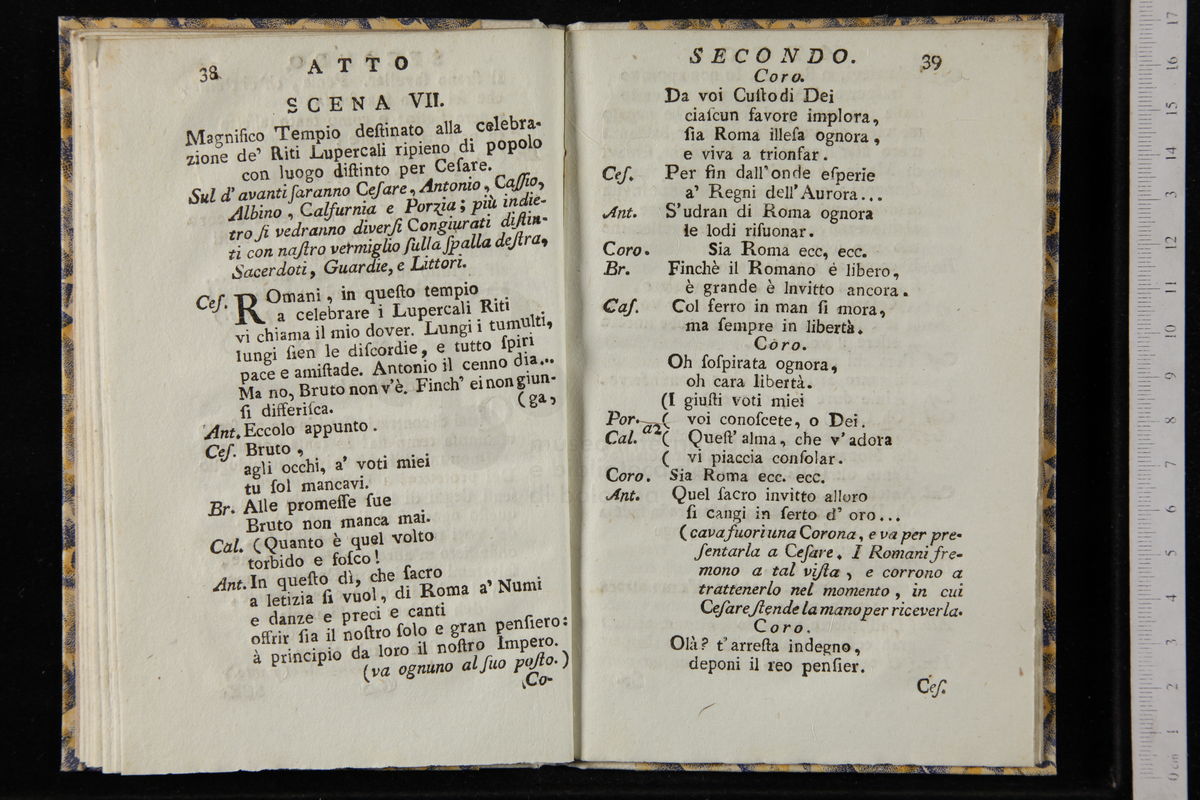 38 ATTO
SCENA VII.
Magnifico Tempio deſtinato alla celebra-
zione de' Riti Lupercali ripieno di popolo
con luogo diſtinto per Ceſare.
Sul d'avanti ſaranno Ceſare, Antonio, Caſſio,
Albino, Calfurnia e Porzia; più indie-
tro ſi vedranno diverſi Congiurati diſtin-
ti con naſtro vermiglio ſulla ſpalla deſtra,
Sacerdoti, Guardie, e Littori.
Ceſ. ROmani, in queſto tempio
a celebrare i Lupercali Riti
vi chiama il mio dover. Lungi i tumulti,
lungi ſien le diſcordie, e tutto ſpiri
pace e amiſtade. Antonio il cenno dia...
Ma no, Bruto non v'è. Finch' ei non giun-
ſi differiſca. (ga,
Ant. Eccolo appunto.
Ceſ. Bruto,
agli occhi, a' voti miei
tu ſol mancavi.
Br. Alle promeſſe ſue
Bruto non manca mai.
Cal. (Quanto è quel volto
torbido e foſco!
Ant. In queſto dì, che ſacro
a letizia ſi vuol, di Roma a' Numi
e danze e preci e canti
offrir ſia il noſtro ſolo e gran penſiero:
à principio da loro il noſtro Impero.
(va ognuno al ſuo poſto.)
Co-
SECONDO. 39
Coro.
Da voi Cuſtodi Dei
ciaſcun favore implora,
ſia Roma illeſa ognora,
e viva a trionfar.
Ceſ. Per fin dall'onde eſperie
a' Regni dell'Aurora...
Ant. S'udran di Roma ognora
le lodi riſuonar.
Coro. Sia Roma ecc, ecc.
Br. Finchè il Romano é libero,
è grande è Invitto ancora.
Caſ. Col ferro in man ſi mora,
ma ſempre in libertà.
Coro.
Oh ſoſpirata ognora,
oh cara libertà.
(I giuſti voti miei
Por. ( voi conoſcete, o Dei.
a2
Cal. ( Queſt' alma, che v'adora
( vi piaccia conſolar.
Coro. Sia Roma ecc. ecc.
Ant. Quel ſacro invitto alloro
ſi cangi in ſerto d' oro...
(cava fuori una Corona, e va per pre-
ſentarla a Ceſare. I Romani fre-
mono a tal viſta, e corrono a
trattenerlo nel momento, in cui
Ceſare ſtende la mano per riceverla.
Coro.
Olà? t'arreſta indegno,
deponi il reo penſier.
Ceſ.
0 cm 1 2 3 4 5 6 7 8 9 10 11 12 13 14 15 16 17